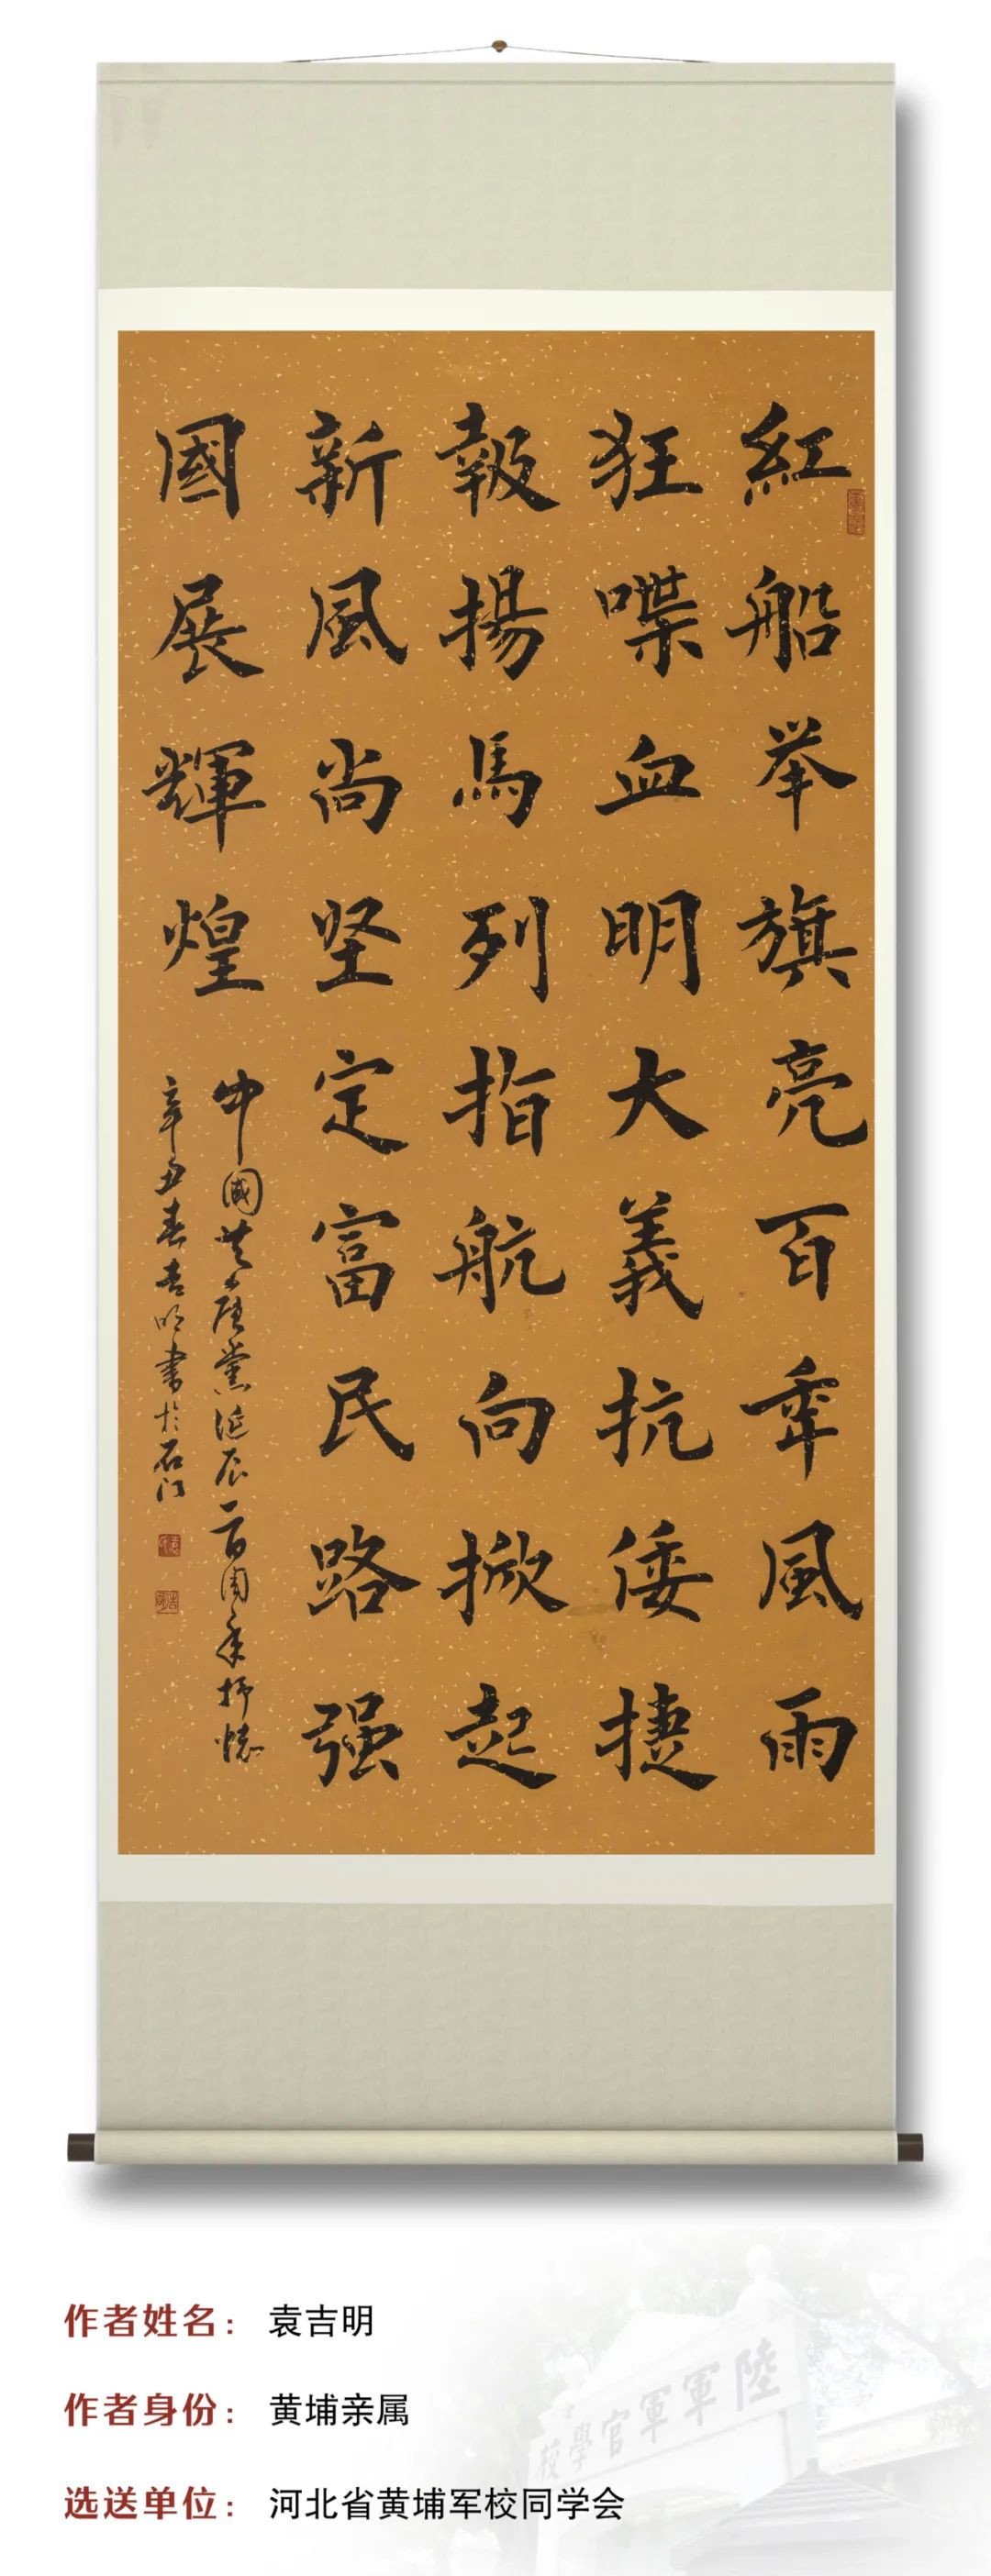 紅船举旗亮百年風雨
狂喋血明大義抗倭捷
報揚馬列指航向掀起
新風尚坚定富民路强
國展輝煌
中國共產黨诞辰一百周年抒懷
辛丑春吉明書於石门
作者姓名：袁吉明
作者身份：黄埔亲属
选送单位：河北省黄埔军校同学会
陸軍軍官學校